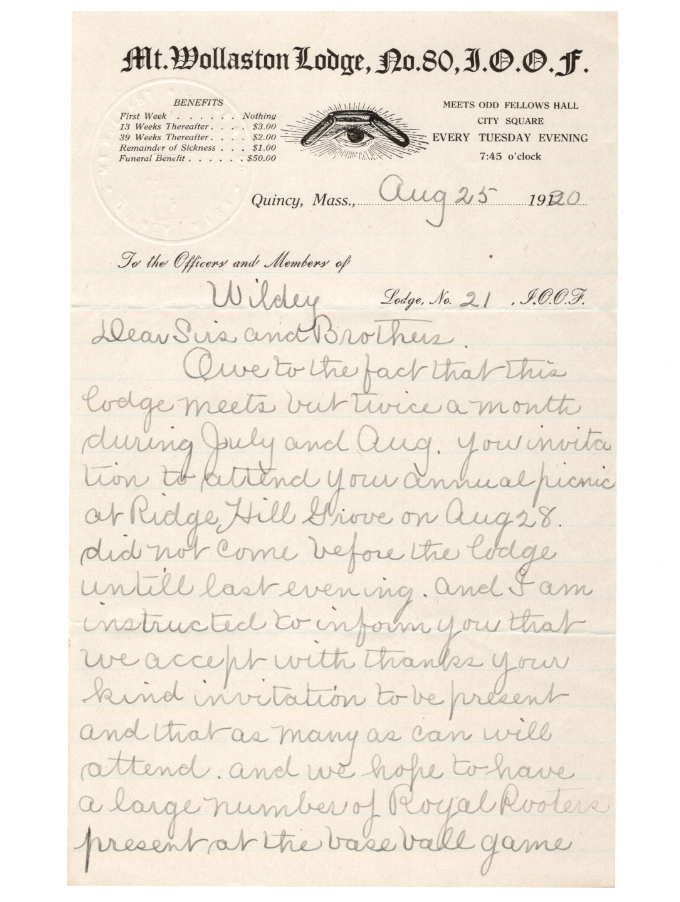 Mt. Wollaston Lodge, No. 80, I.O.O.F.
BENEFITS
First Week . . . . . . Nothing
13 Weeks Thereafter . . . . $3.00
39 Weeks Thereafter . . . . $2.00
Remainder of Sickness . . . $1.00
Funeral Benefit . . . . . . $50.00
MEETS ODD FELLOWS HALL
CITY SQUARE
EVERY TUESDAY EVENING
7:45 o'clock
Quincy, Mass., Aug 25 1920
To the Officers and Members of
Wildey Lodge, No. 21 , I.O.O.F.
Dear Sirs and Brothers.
Owe to the fact that this
lodge meets but twice a month
during July and Aug. you invita
tion to attend your annual picnic
at Ridge Hill Grove on Aug 28.
did not come before the lodge
untill last evening. and I am
instructed to inform you that
we accept with thanks your
kind invitation to be present
and that as many as can will
attend. and we hope to have
a large number of Royal Rooters
present at the base ball game